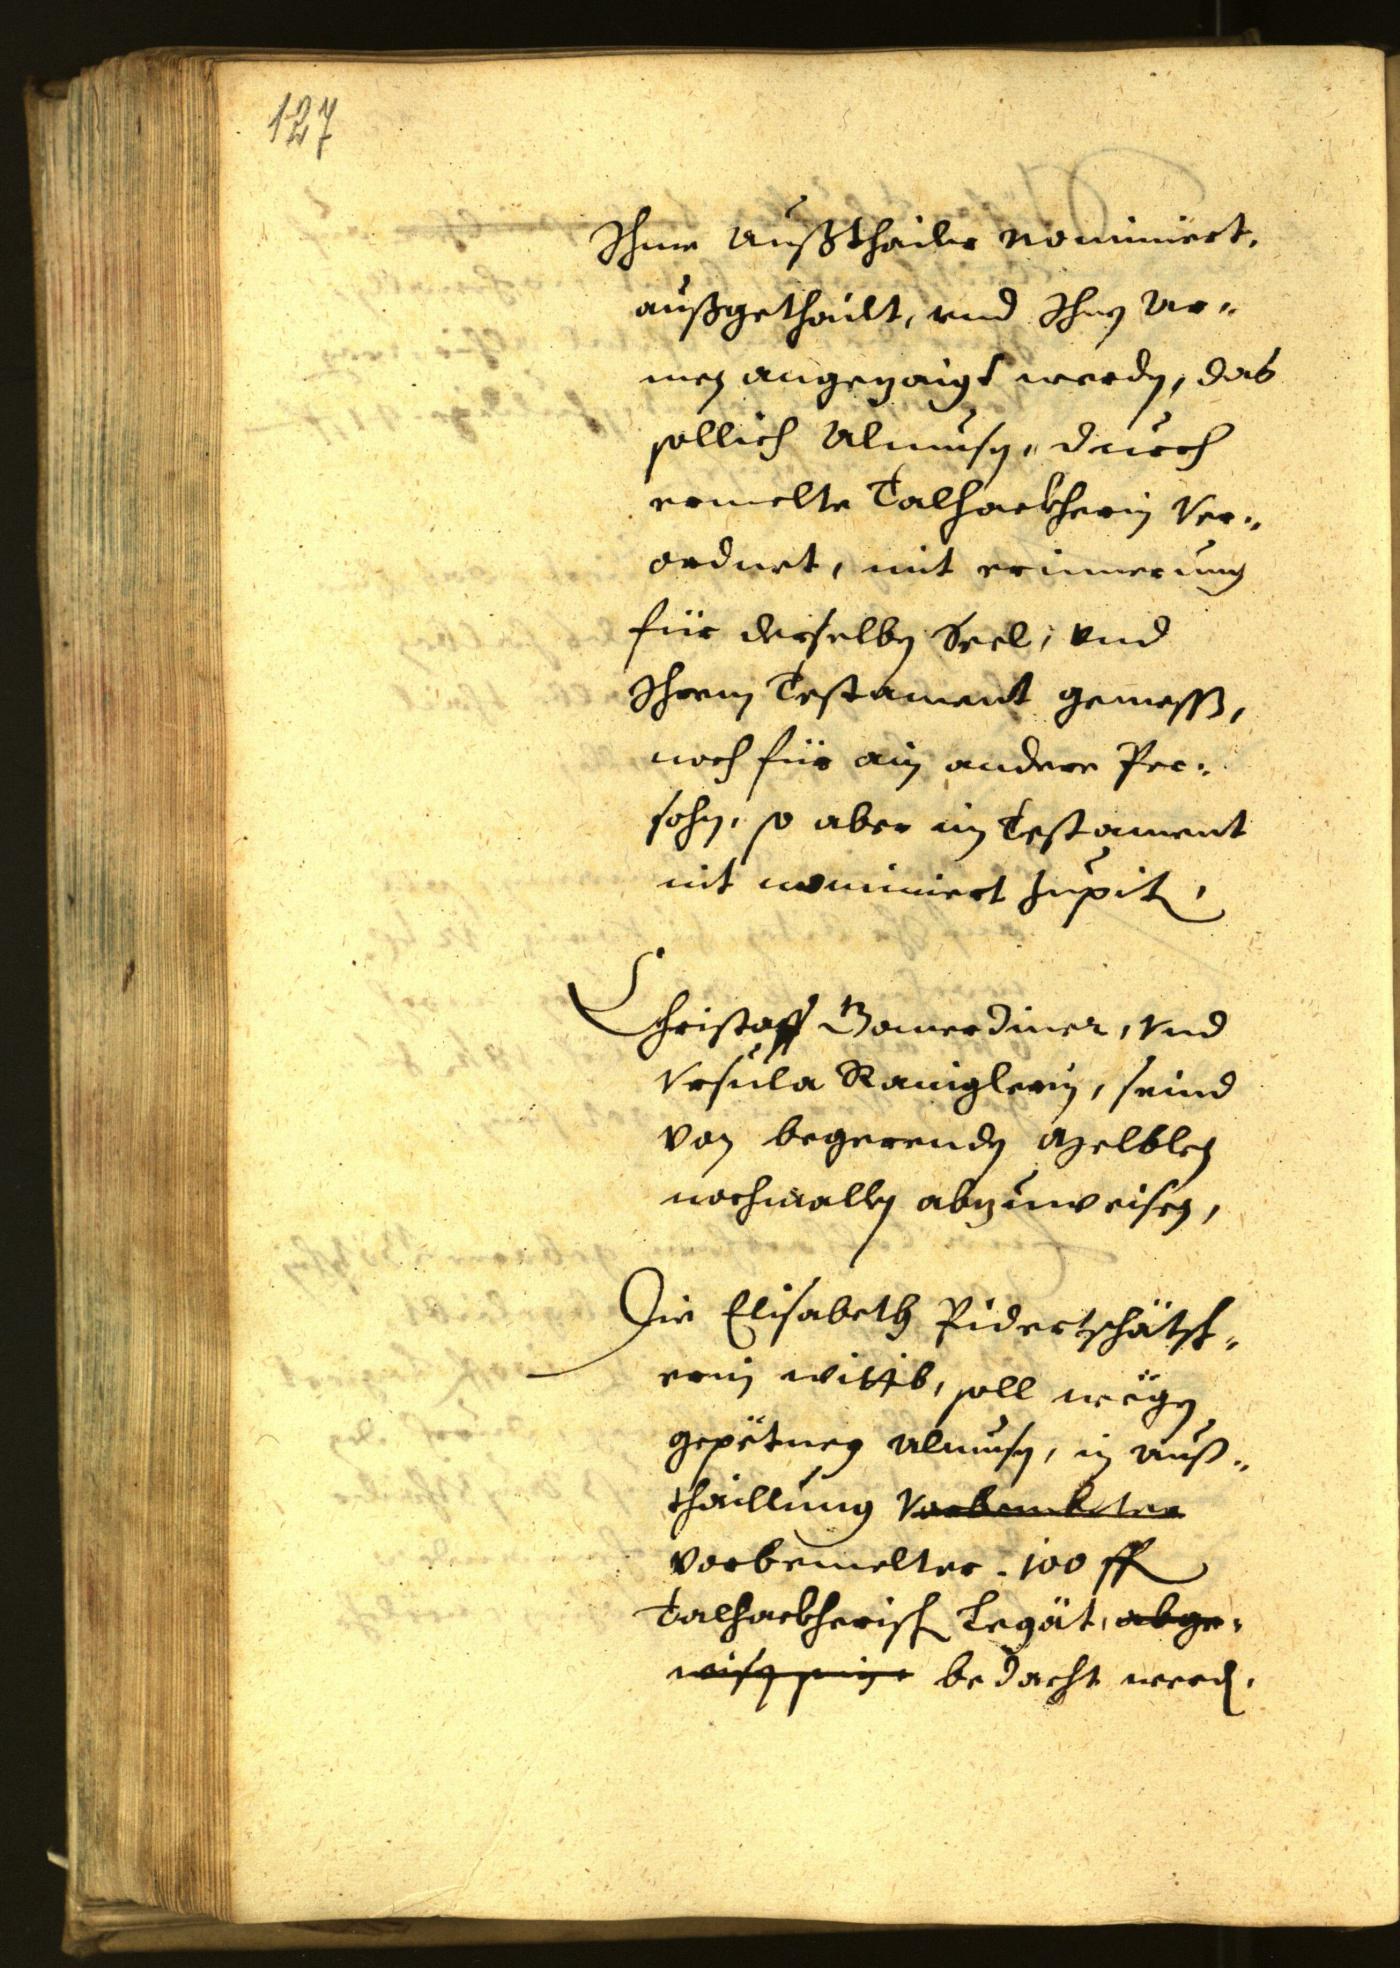 127
Ihme Außthailer nominiert,
außgethailt, vnd Ihnen Ar„
men angezaigt werden, das
sollich Almusen, durch
ermelte Talhackherin Ver„
ordnet, mit erinnerung
für derselben Seel, vnd
Ihrem Testament gemess,
noch für ain andere Per„
sohn, so aber im Testament
nit nominiert
Christoff Gamerdiner, vnd
Vrsula Raniglerin, seind
von begerenden
nochmallen abzuweisen,
Die Elisabeth Pidertschätsch„
erin wittib, soll wegen
gepetnen Almusen, in auß„
thaillung vorbemelter
vorbemelter 100 fl
Talhackherisch Legät, abge„
wisen sein bedacht werden.